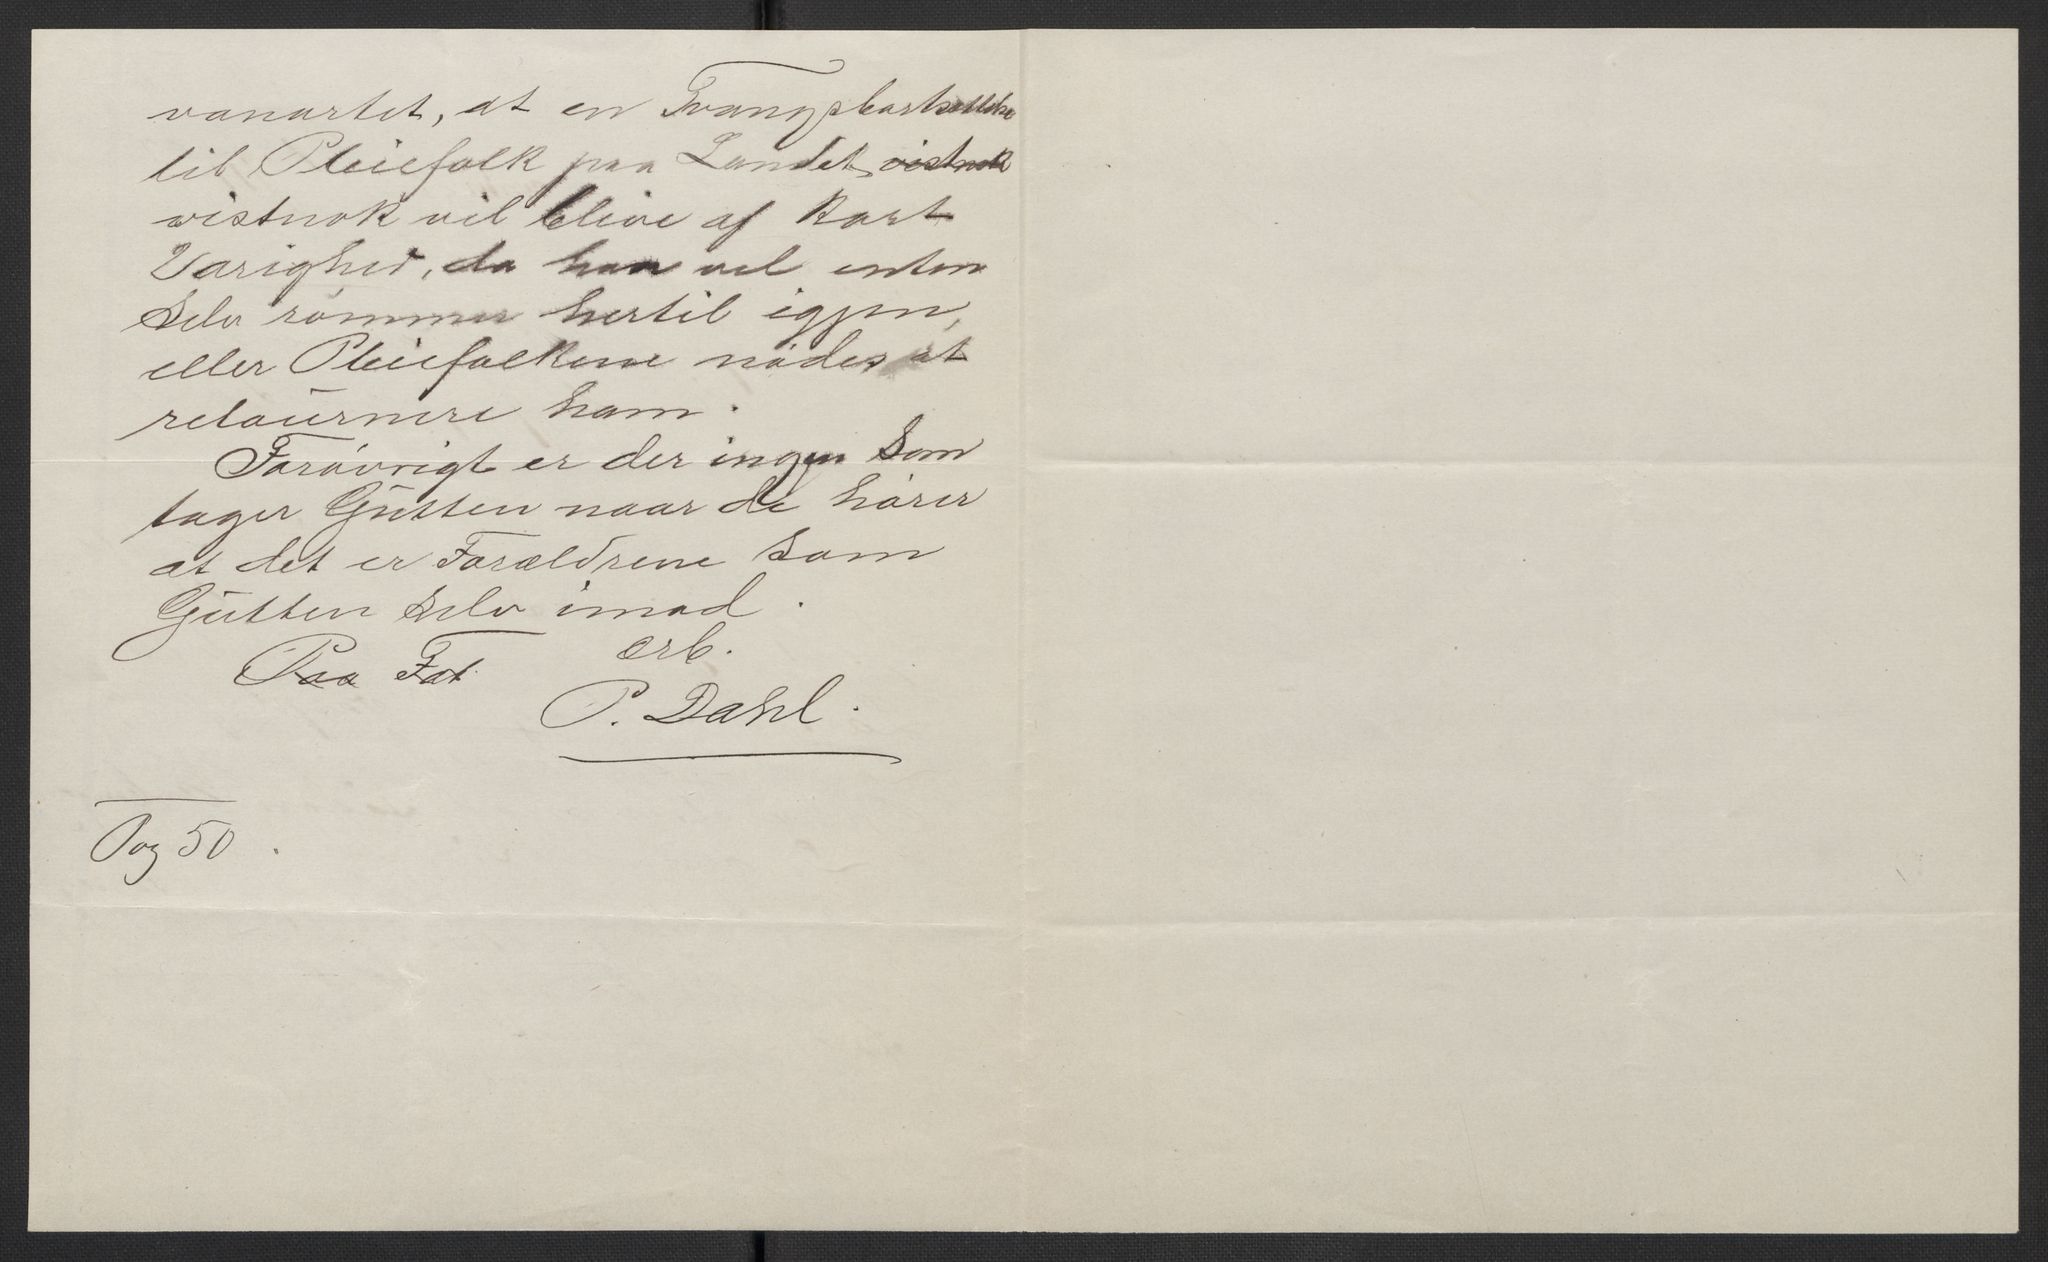 vanartet, at en Tvangsbortsættelse
til Pleiefolk paa Landet vistnok
vistnok vil blive af kort
Varighed, da han vel enten
selv rømmer hertil igjen,
eller Pleiefolkene nødes at
retournere ham.
Forøvrigt er der ingen som
tager Gutten naar de hører
at det er Forældrene som
Gutten selv imod.
Paa Fat. ærb.
P. Dahl.
Pog 50.